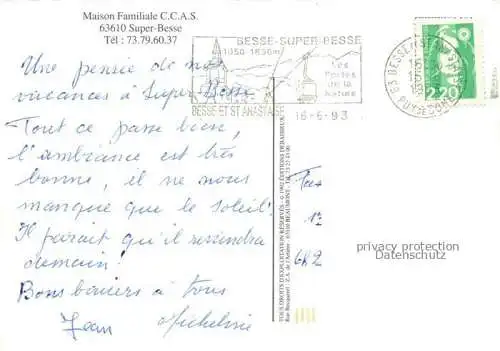 Maison Familiale C.C.A.S.
63610 Super-Besse
Tél : 73.79.60.37
Une pensée de nos
vacances à Super-Besse
Tout ce passe bien,
l'ambiance est très
bonne, il ne nous
manque que le soleil!
Il parait qu'il reviendra
demain!
Bons baisers à tous
Jean Micheline
BESSE-SUPER-BESSE
1050-1850m
Les
Portes
de la
Nature
BESSE ET ST ANASTAISE
16-6-93
63 BESSE ET ST ANASTAISE
PUY DE DOME
2,20
TOUS DROITS D'EXPLOITATION RÉSERVÉS - © 1992 ÉDITIONS DEBAISIEUX
protection
Datenschutz
privacy